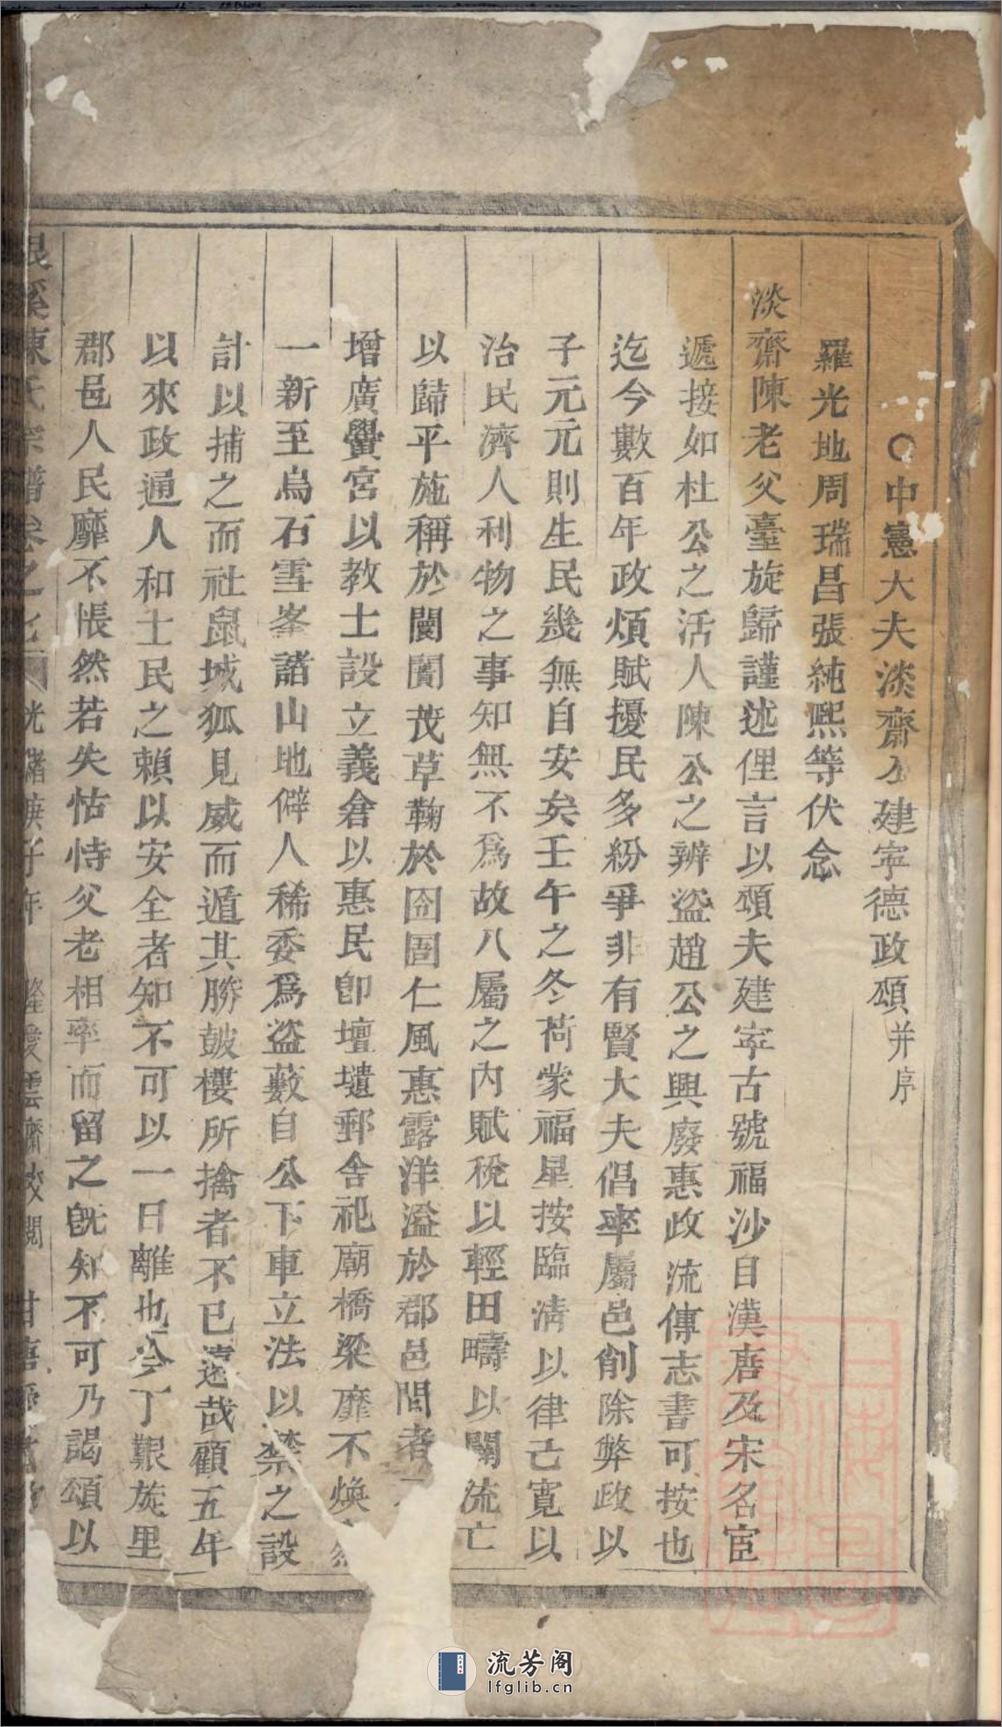 ○中憲大夫淡齋公建寧德政頌并序
羅光地周瑞昌張純熙等伏念
淡齋陳老父臺旋歸謹述俚言以頌夫建寧古號福沙自漢唐及宋名宦
遞接如杜公之活人陳公之辨盜趙公之興廢惠政流傳志書可按也
迄今數百年政煩賦擾民多紛爭非有賢大夫倡率屬邑削除弊政以
子元元則生民幾無自安矣壬午之冬荷蒙福星按臨淸以律己寬以
治民濟人利物之事知無不爲故八屬之内賦稅以輕田疇以闢流亡
以歸平施稱於闤闠茂草鞠於囹圄仁風惠露洋溢於郡邑間者
增廣黌宮以教士設立義倉以惠民卽壇壝郵舍祀廟橋梁靡不煥
一新至烏石雪峯諸山地僻人稀委爲盜藪自公下車立法以禁之設
計以捕之而社鼠城狐見威而遁其勝鼓樓所擒者不已遠哉顧五年
以來政通人和士民之賴以安全者知不可以一日離也今丁艱旋里
郡邑人民靡不悵然若失怙恃父老相率而留之旣知不可乃謁頌以
溪陳氏宗譜卷之七 光緒庚子年 雲齋校閱
流芳阁
lfglib.cn